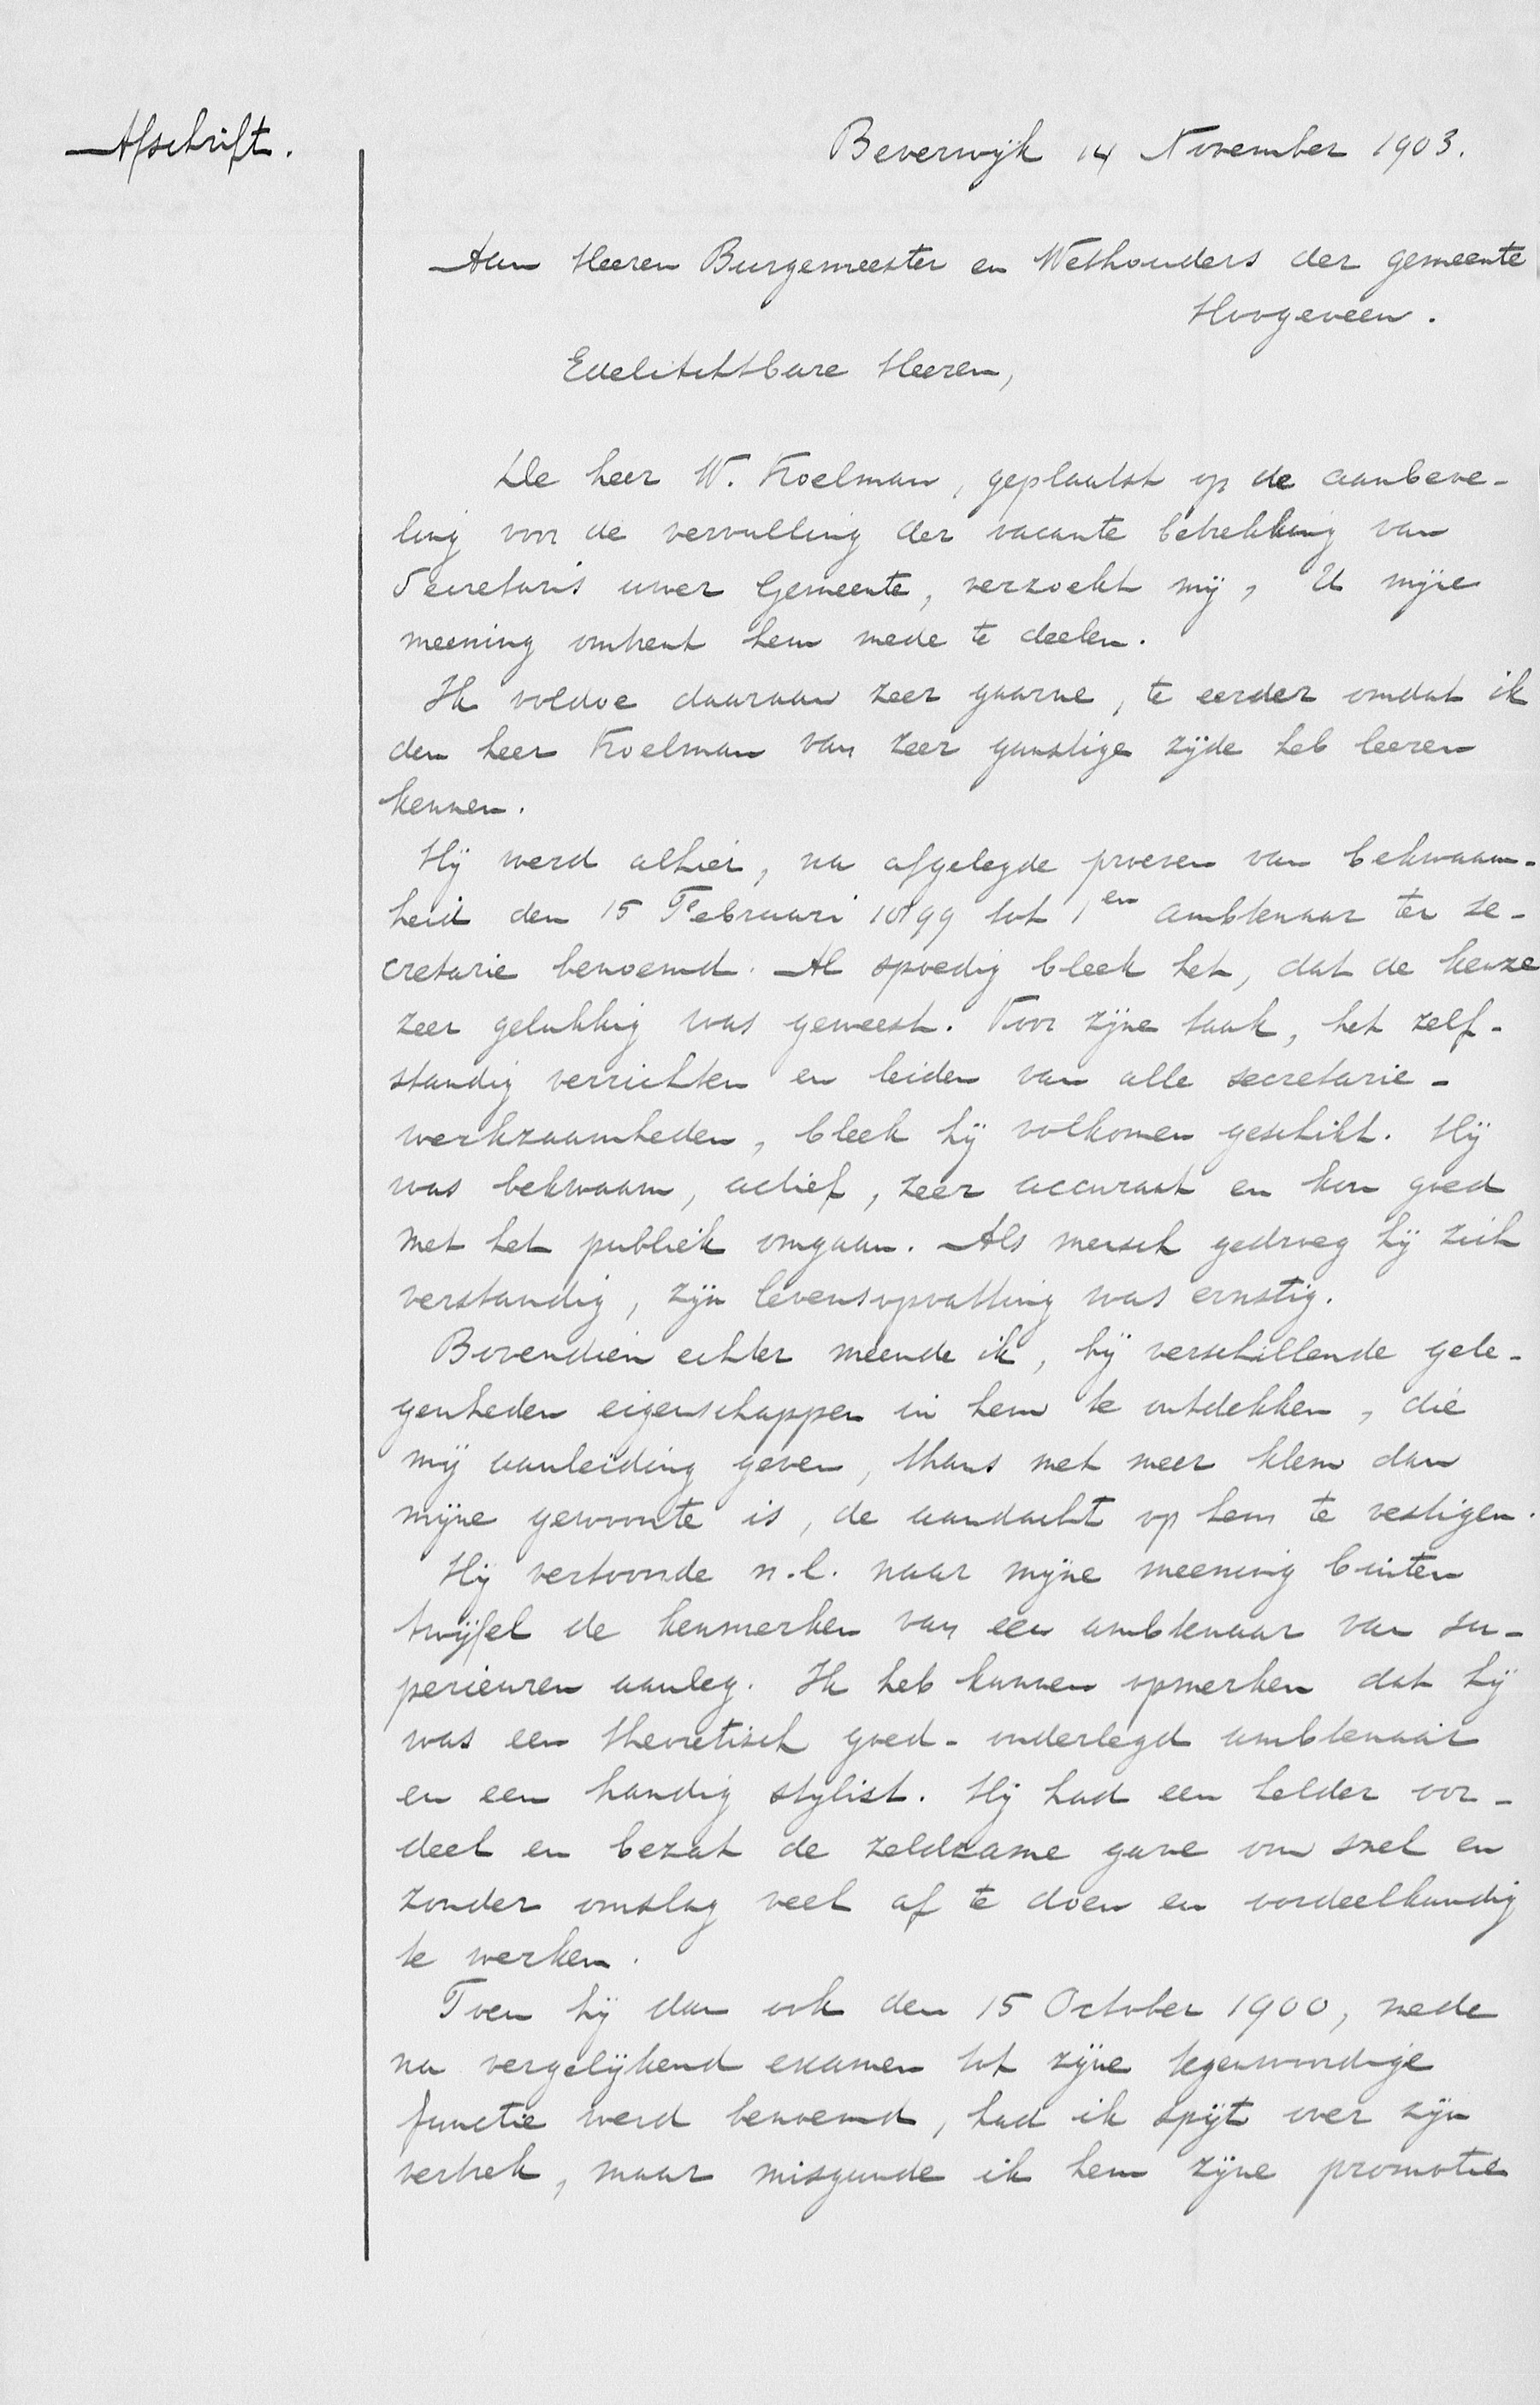 Afschrift.
Beverwijk 14 November 1903.
Aan Heeren Burgemeester en Wethouders der gemeente
Hoogeveen.
Edelachtbare Heeren,
De heer W. Koelman, geplaatst op de aanbeve-
ling voor de vervulling der vacante betrekking van
Secretaris uwer Gemeente, verzoekt mij, U mijne
meening omtrent hem mede te deelen.
Ik voldoe daaraan zeer gaarne, te eerder omdat ik
den heer Koelman van zeer gunstige zijde heb leeren
kennen.
Hij werd alhier, na afgelegde proeven van bekwaam-
heid den 15 Februari 1899 tot 1en ambtenaar ter se-
cretarie benoemd. Al spoedig bleek het, dat de keuze
zeer gelukkig was geweest. Voor zijne taak, het zelf-
standig verrichten en leiden van alle secretarie-
werkzaamheden, bleek hij volkomen geschikt. Hij
was bekwaam, actief, zeer accuraat en kon goed
met het publiek omgaan. Als mensch gedroeg hij zich
verstandig, zijn levensopvatting was ernstig.
Bovendien echter meende ik, bij verschillende gele-
genheden eigenschappen in hem te ontdekken, die
mij aanleiding geven, thans met meer klem dan
mijne gewoonte is, de aandacht op hem te vestigen.
Hij vertoonde n.l. naar mijne meening buiten
twijfel de kenmerken van een ambtenaar van su-
perieuren aanleg. Ik heb kunnen opmerken dat hij
was een theoretisch goed-onderlegd ambtenaar
en een handig stylist. Hij had een helder oor-
deel en bezat de zeldzame gave om snel en
zonder omslag veel af te doen en oordeelkundig
te werken.
Toen hij dan ook den 15 October 1900, mede
na vergelijkend examen tot zijne tegenwoordige
functie werd benoemd, had ik spijt over zijn
vertrek, maar misgunde ik hem zijne promotie